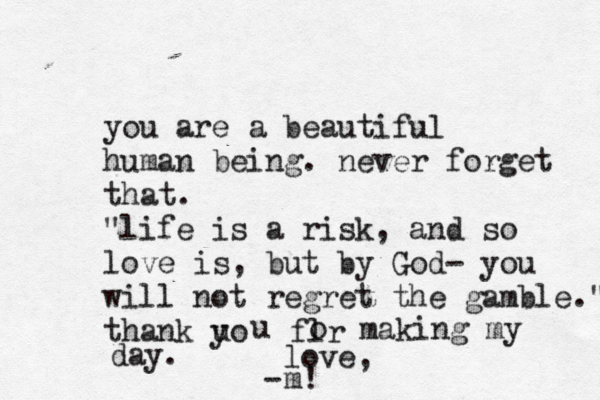 you are a beautiful
human being. never forget
that.
"life is a risk, and so
love is, but by God- you
will not regret the gamble."
thank you for making my
day. love,
-m!